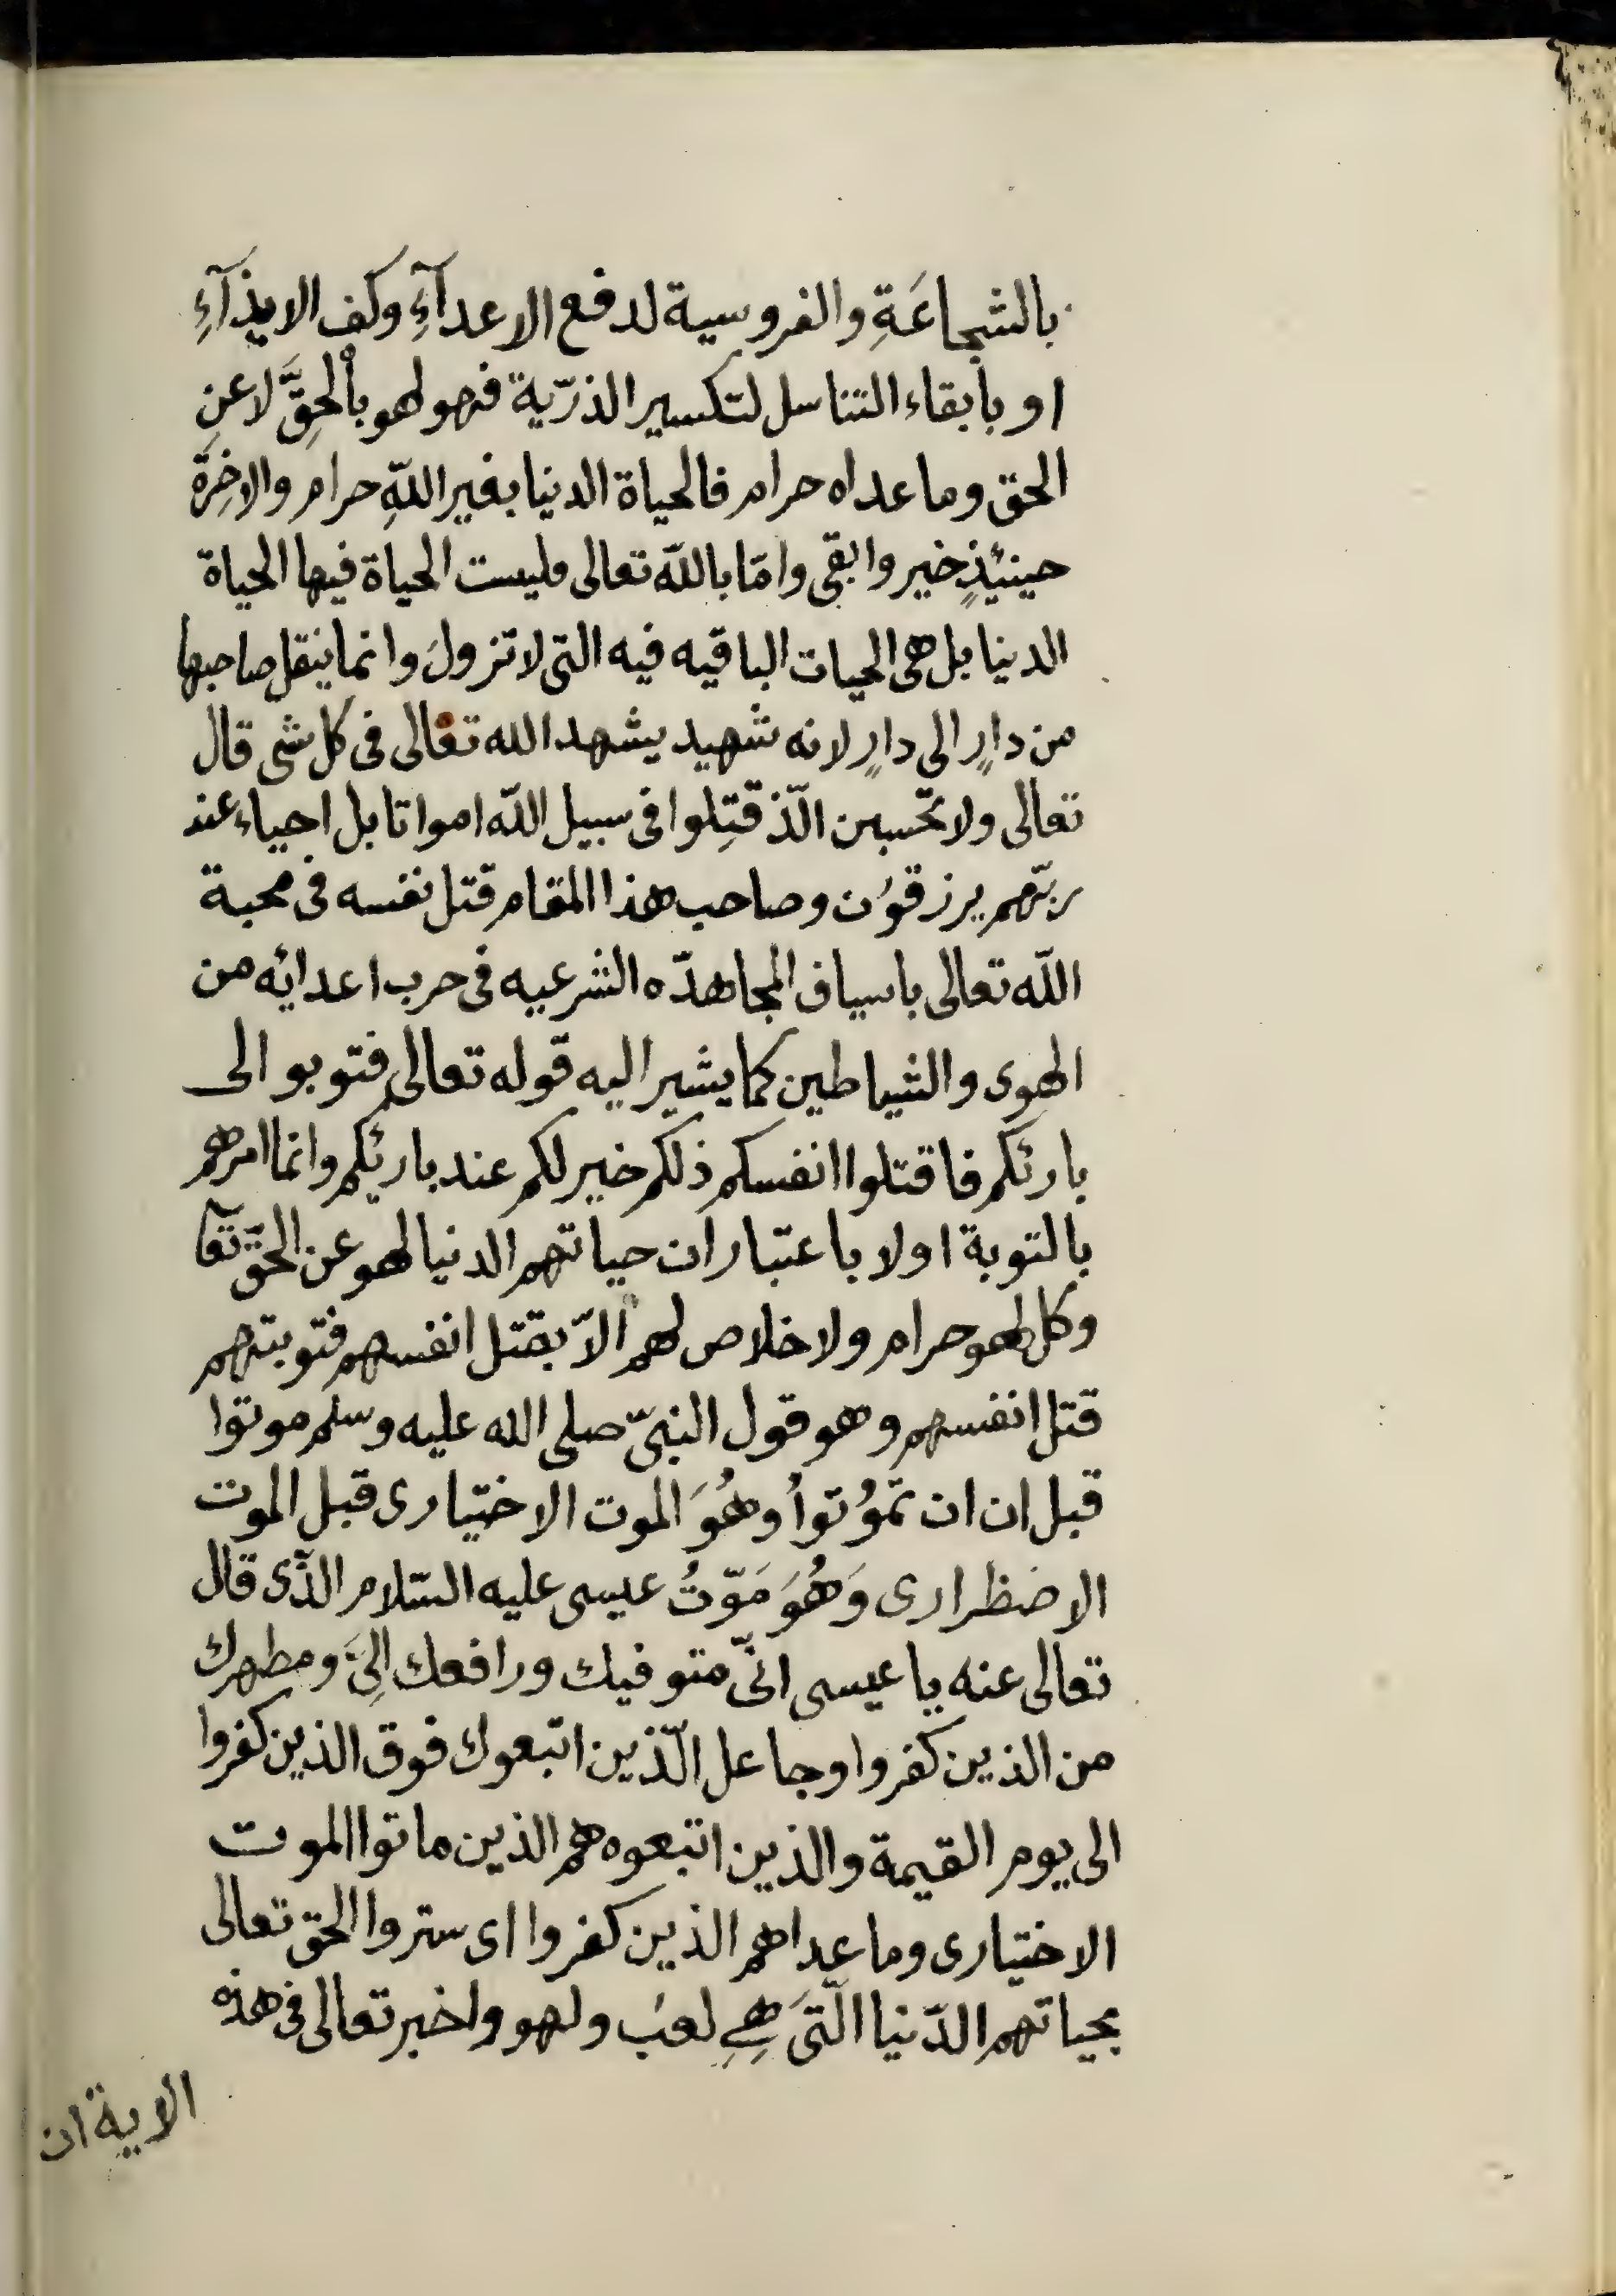 بالشجاعَةِ والفروسية لدفع الاعدآءِ وكف الايذآءِ
او بابقاء التناسل لتكسير الذرّية فهو لهو بألحِقَّ لا عنِ
الحق وما عداه حرام فالحياة الدنيا بغير اللّهِ حرام والاخِرَة
حينئِذٍ خير وابقى وامّا باللّه تعالى فليست الحياة فيها الحياة
الدنيا بل هى الحيات الباقيه فيه التى لا تزولَ وانما ينقل صاحبها
من دارٍ الى دارٍ لانه شهيد يشهد الله تعالى فى كل شى قال
تعالى ولا تحّسبن الّذ قتِلوا فى سبيل اللّه امواتا بل احياء عند
ربّهم يرزقوُن وصاحب هذا المقام قتل نفسه فى محبة
اللّه تعالى باسياف المجاهدّه الشرعيه فى حرب اعدائه من
الهوى والشياطين كما يشير اليه قوله تعالى فتوبو الى
بارئكم فاقتلوا انفسكم ذلكم خير لكم عند باريكم وانما امرهم
بالتوبة اولا باعتبار ان حياتهم الدنيا لهو عن الحقّ تعآ
وكل لهو حرام ولا خلاص لهم الاّ بقتل انفسهم فتوبتهم
قتل انفسهم وهو قول النبىّ صلى الله عليه وسلم موتوا
قبل ان ان تمّوُتواُ وهُوَ الموت الاختيارى قبل الموت
الاضظرارى وَهُوَ مَوّتُ عيسى عليه السّلام الذّى قال
تعالى عنه يا عيسى انىّ متوفيك ورافعك الِىَّ ومطهرك
من الذين كفروا وجاعل الّذين اتّبعوك فوق الذين كفروا
الى يوم القيمة والذين اتبعوه هم الذين ماتوا الموت
الاختيارى وما عداهم الذين كفروا اى ستروا الحق تعالى
بحياتهم الدّنيا الّتىَ هِىِ لعب ولهو واخبر تعالى فى هذه
الاية ان